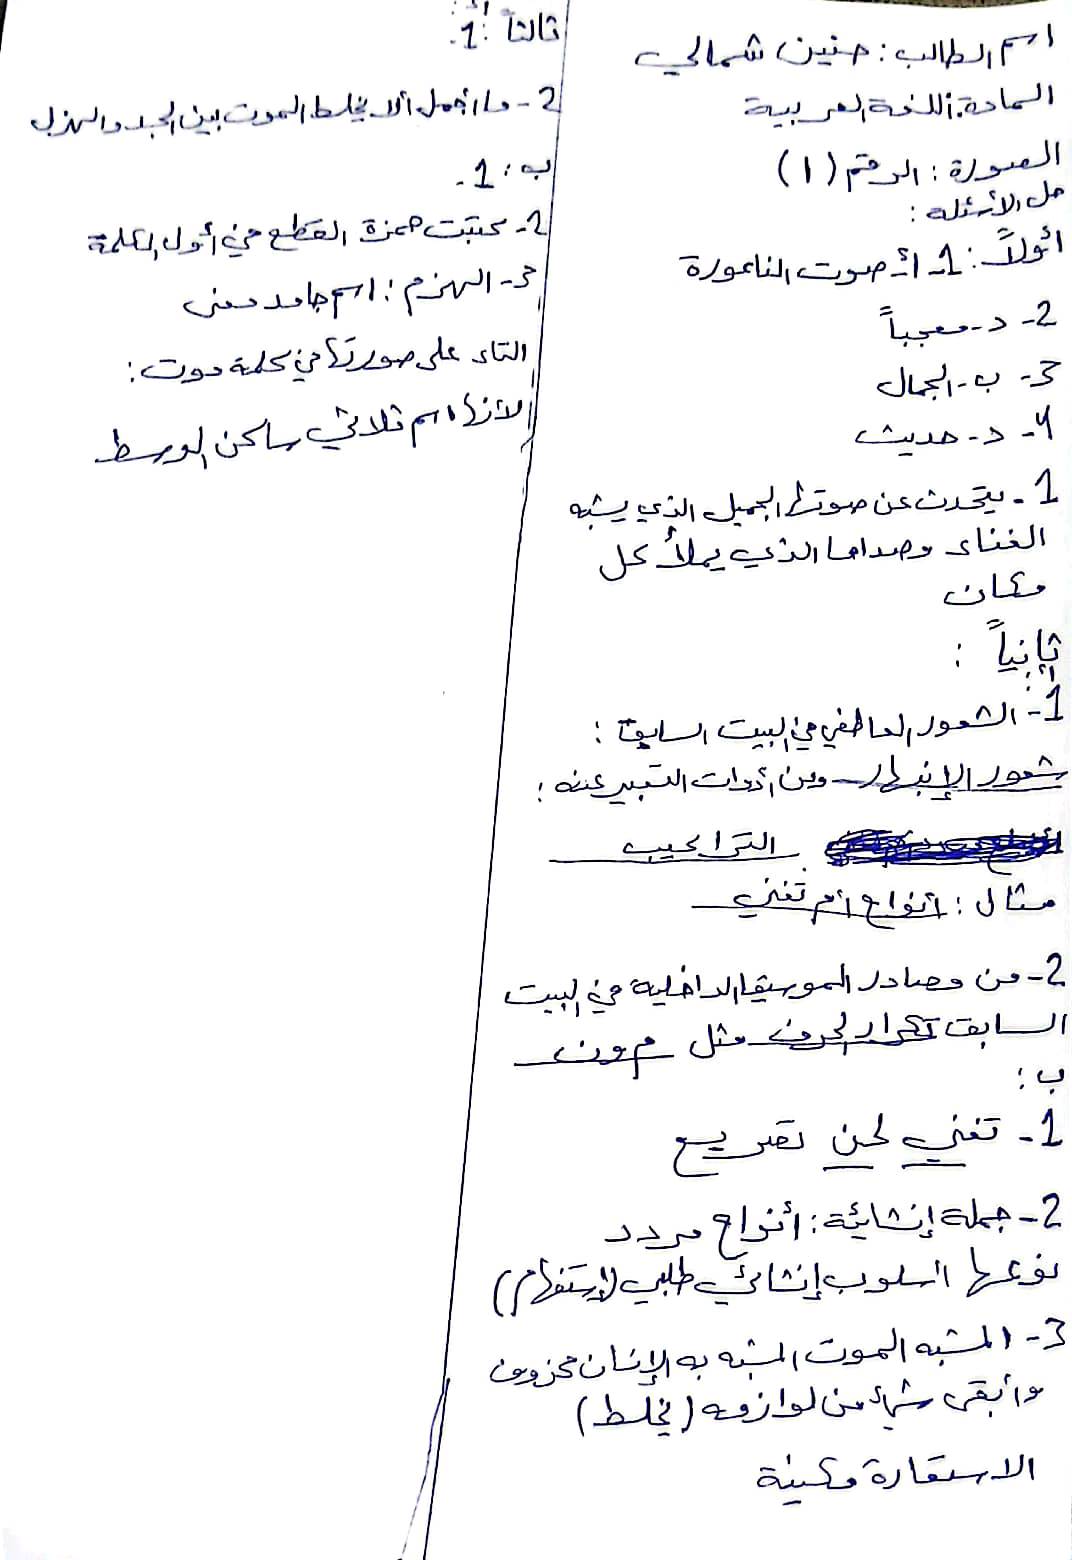 اسم الطالب: حنين شمالي
المادة: اللغة العربية
الصورة: الرقم (١)
حل الأسئلة:
أولاً: 1- أ- صوت الناعورة
2- د- معجباً
3- ب- الجمال
4- د- حديث
1- يتحدث عن صوتها الجميل الذي يشبه
الغناء وصداها الذي يملأ كل
مكان
ثانياً:
أ:
1- الشعور العاطفي في البيت السابق:
شعور الإنبهار ومن أدوات التعبير عنه:
التراكيب
مثال: أنواح أم تغني
2- من مصادر الموسيقا الداخلية في البيت
السابق تكرار الحرف مثل م ون
ب:
1- تغني لحن تصريع
2- جملة إنشائية: أنواح مردد
نوعها أسلوب إنشائي طلبي (إستفهام)
3- المشبه الموت المشبه به الإنسان محزوف
وأبقى شيء من لوازمه (يخلط)
الاستعارة مكنية
ثالثاً: أ:
1.
2- ما أجمل ألا يخلط الموت بين الجد والهزل
ب: 1-
2- كتبت همزة القطع في أول الكلمة
3- الهزم: اسم جامد معنى
التاء على صورتها في كلمة موت:
لأنها اسم ثلاثي ساكن الوسط